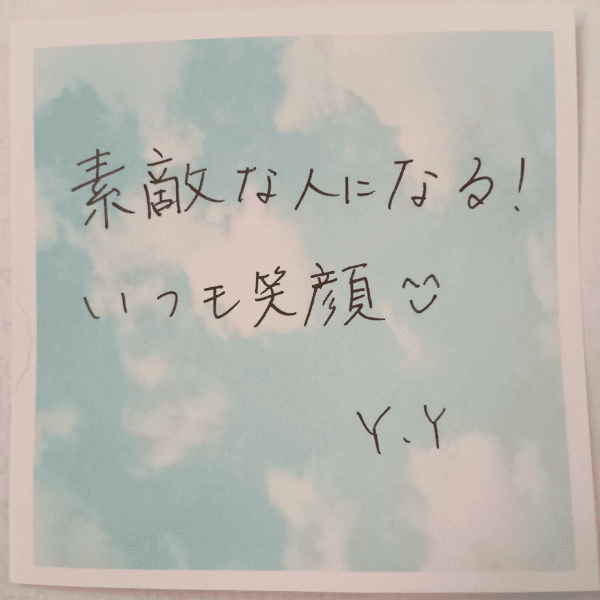 素敵な人になる!
いつも笑顔
Y.Y